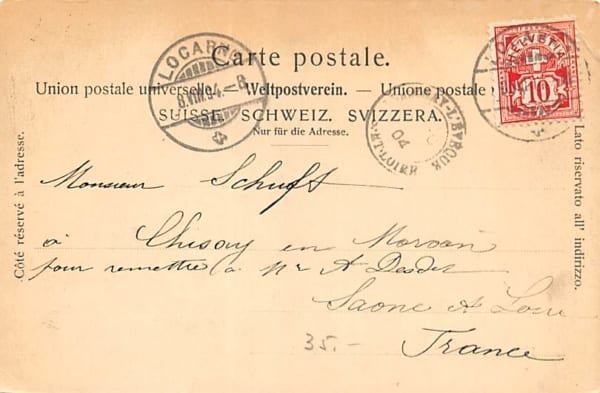 Carte postale.
Union postale universelle. — Weltpostverein. — Unione postale
SUISSE. SCHWEIZ. SVIZZERA.
Nur für die Adresse.
Côté réservé à l'adresse.
Lato riservato all' indirizzo.
LOCARNO
8.VIII.04.-8
HELVETIA
10
L'EVEQUE
ET-LOIRE
04
Monsieur Schuft
à Chissay en Morvan
pour remettre à Mr A
Saone et Loire
France
35.-